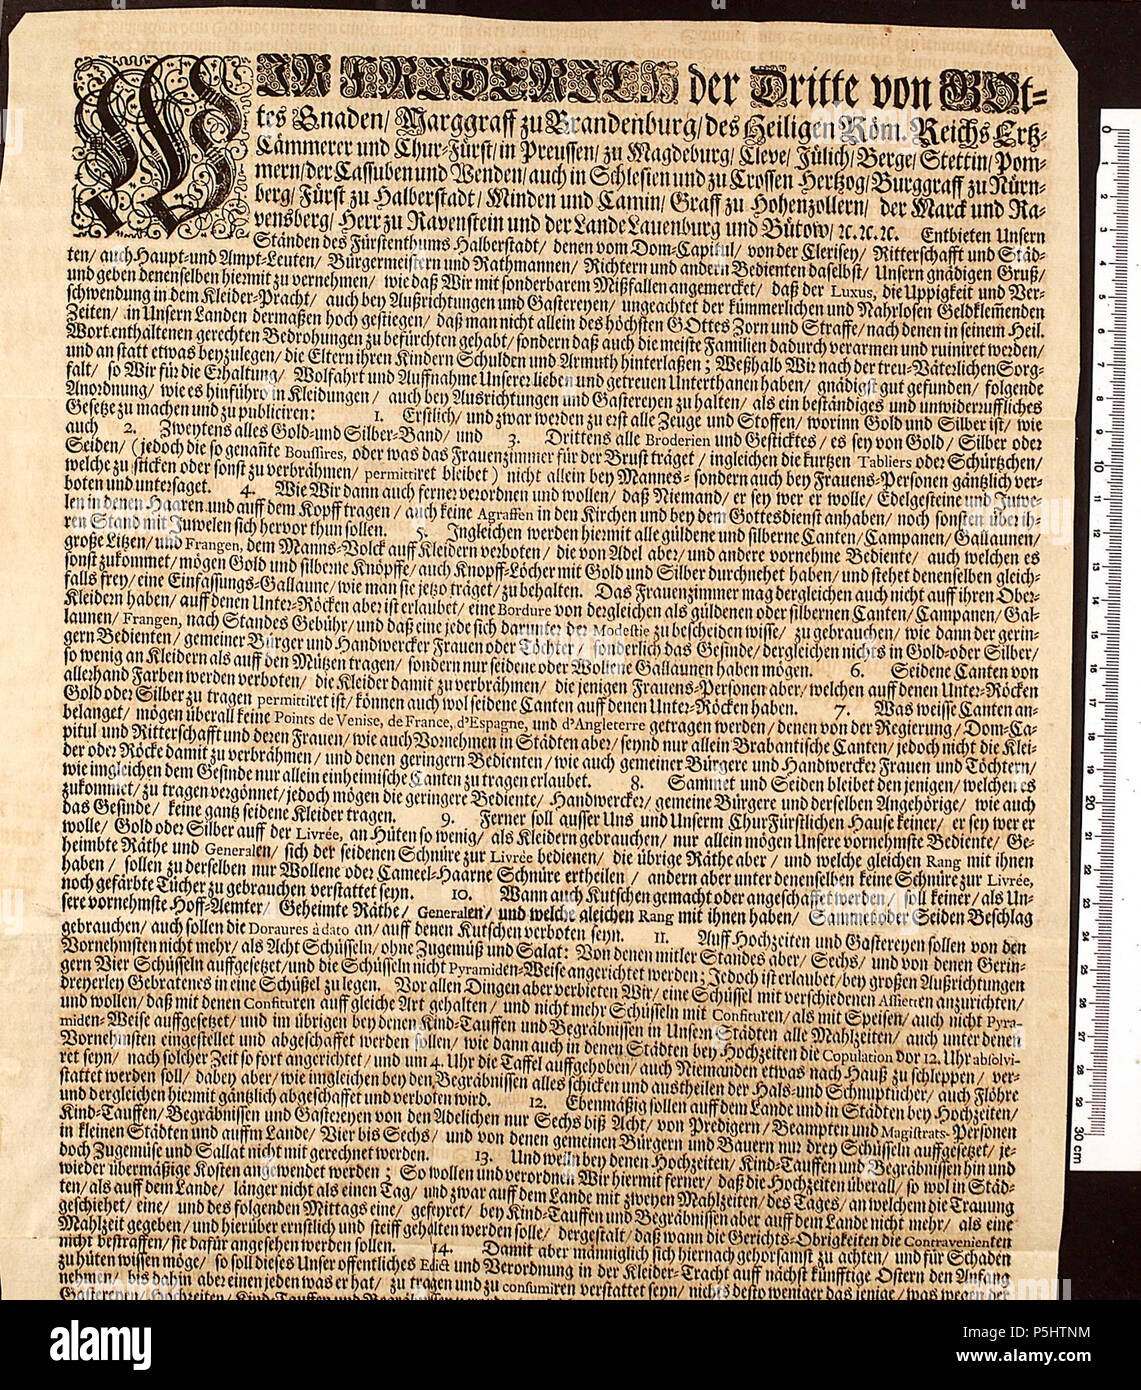 WIR FRIDERICH der Dritte von GOt-
tes Gnaden/ Marggraff zu Brandenburg/ des Heiligen Röm. Reichs Ertz-
Cämmerer und Chur-Fürst/ in Preussen/ zu Magdeburg/ Cleve/ Jülich/ Berge/ Stettin/ Pom-
mern/ der Cassuben und Wenden/ auch in Schlesien und zu Crossen Hertzog/ Burggraff zu Nürn-
berg/ Fürst zu Halberstadt/ Minden und Camin/ Graff zu Hohenzollern/ der Marck und Ra-
vensberg/ Herr zu Ravenstein und der Lande Lauenburg und Bütow/ ꝛc. ꝛc. ꝛc. Entbieten Unsern
Ständen des Fürstenthums Halberstadt/ denen vom Dom-Capitul/ von der Clerisey/ Ritterschafft und Städ-
ten/ auch Haupt- und Ampt-Leuten/ Bürgermeistern und Rathmannen/ Richtern und andern Bedienten daselbst/ Unsern gnädigen Gruß/
und geben denenselben hiermit zu vernehmen/ wie daß Wir mit sonderbarem Mißfallen angemercket/ daß der Luxus, die Uppigkeit und Ver-
schwendung in dem Kleider-Pracht/ auch bey Außrichtungen und Gastereyen/ ungeachtet der kümmerlichen und Nahrlosen Geldklem̃enden
Zeiten/ in Unsern Landen dermaßen hoch gestiegen/ daß man nicht allein des höchsten GOttes Zorn und Straffe/ nach denen in seinem Heil.
Wort enthaltenen gerechten Bedrohungen zu befürchten gehabt/ sondern daß auch die meiste Familien dadurch verarmen und ruiniret werden/
und an statt etwas beyzulegen/ die Eltern ihren Kindern Schulden und Armuth hinterlaßen; Weßhalb Wir nach der treu-Väterlichen Sorg-
falt/ so Wir für die Erhaltung/ Wolfahrt und Auffnahme Unserer lieben und getreuen Unterthanen haben/ gnädigst gut gefunden/ folgende
Anordnung/ wie es hinführo in Kleidungen/ auch bey Ausrichtungen und Gastereyen zu halten/ als ein beständiges und unwiderruffliches
Gesetze zu machen und zu publiciren: 1. Erstlich/ und zwar werden zu erst alle Zeuge und Stoffen/ worinn Gold und Silber ist/ wie
auch 2. Zweytens alles Gold- und Silber-Band/ und 3. Drittens alle Broderien und Gesticktes/ es sey von Gold/ Silber oder
Seiden/ (jedoch die so genañte Bouffires, oder was das Frauenzimmer für der Brust träget/ ingleichen die kurtzen Tabliers oder Schürtzchen/
welche zu sticken oder sonst zu verbrähmen/ permittiret bleibet) nicht allein bey Mannes- sondern auch bey Frauens-Personen gäntzlich ver-
boten und untersaget. 4. Wie Wir dann auch ferner verordnen und wollen/ daß Niemand/ er sey wer er wolle/ Edelgesteine und Juwe-
len in denen Haaren und auf dem Kopff tragen/ auch keine Agraffen in den Kirchen und bey dem Gottesdienst anhaben/ noch sonsten über ih-
ren Stand mit Juwelen sich hervor thun sollen. 5. Ingleichen werden hiermit alle güldene und silberne Canten/ Campanen/ Gallaunen/
große Litzen/ und Frangen, dem Manns-Volck auff Kleidern verboten/ die von Adel aber/ und andere vornehme Bediente/ auch welchen es
sonst zukommet/ mögen Gold und silberne Knöpffe/ auch Knopff-Löcher mit Gold und Silber durchnehet haben/ und stehet denenselben gleich-
falls frey/ eine Einfassungs-Gallaune/ wie man sie jetzo träget/ zu behalten. Das Frauenzimmer mag dergleichen auch nicht auff ihren Ober-
Kleidern haben/ auff denen Unter-Röcken aber ist erlaubet/ eine Bordure von dergleichen als güldenen oder silbernen Canten/ Campanen/ Gal-
launen/ Frangen, nach Standes Gebühr/ und daß eine jede sich darunter der Modestie zu bescheiden wisse/ zu gebrauchen/ wie dann der gerin-
gern Bedienten/ gemeiner Bürger und Handwercker Frauen oder Töchter/ sonderlich das Gesinde/ dergleichen nichts in Gold- oder Silber/
so wenig an Kleidern als auff den Mützen tragen/ sondern nur seidene oder Wollene Gallaunen haben mögen. 6. Seidene Canten von
allerhand Farben werden verboten/ die Kleider damit zu verbrähmen/ die jenigen Frauens-Personen aber/ welchen auff denen Unter-Röcken
Gold oder Silber zu tragen permittiret ist/ können auch wol seidene Canten auff denen Unter-Röcken haben. 7. Was weisse Canten an-
belanget/ mögen überall keine Points de Venise, de France, d'Espagne, und d'Angleterre getragen werden/ denen von der Regierung/ Dom-Ca-
pitul und Ritterschafft und deren Frauen/ wie auch Vornehmen in Städten aber/ seynd nur allein Brabantische Canten/ jedoch nicht die Klei-
der oder Röcke damit zu verbrähmen/ und denen geringern Bedienten/ wie auch gemeiner Bürgere und Handwercker Frauen und Töchtern/
wie imgleichen dem Gesinde nur allein einheimische Canten zu tragen erlaubet. 8. Sammet und Seiden bleibet den jenigen/ welchen es
zukommet/ zu tragen vergönnet/ jedoch mögen die geringere Bediente/ Handwercker/ gemeine Bürgere und derselben Angehörige/ wie auch
das Gesinde/ keine gantz seidene Kleider tragen. 9. Ferner soll ausser Uns und Unserm ChurFürstlichen Hause keiner/ er sey wer er
wolle/ Gold oder Silber auff der Livrée, an Hüten so wenig/ als Kleidern gebrauchen/ nur allein mögen Unsere vornehmste Bediente/ Ge-
heimbte Räthe und Generalen/ sich der seidenen Schnüre zur Livrée bedienen/ die übrige Räthe aber/ und welche gleichen Rang mit ihnen
haben/ sollen zu derselben nur Wollene oder Cameel-Haarne Schnüre ertheilen/ andern aber unter denenselben keine Schnüre zur Livrée,
noch gefärbte Tücher zu gebrauchen verstattet seyn. 10. Wann auch Kutschen gemacht oder angeschaffet werden/ soll keiner/ als Un-
sere vornehmste Hoff-Aemter/ Geheimte Räthe/ Generalen/ und welche gleichen Rang mit ihnen haben/ Sammet oder Seiden Beschlag
gebrauchen/ auch sollen die Doraures à dato an/ auff denen Kutschen verboten seyn. 11. Auff Hochzeiten und Gastereyen sollen von den
Vornehmsten nicht mehr/ als Acht Schüsseln/ ohne Zugemüß und Salat: Von denen mitler Standes aber/ Sechs/ und von denen Gerin-
gern Vier Schüsseln auffgesetzet/ und die Schüsseln nicht Pyramiden-Weise angerichtet werden; Jedoch ist erlaubet/ bey großen Außrichtungen
dreyerley Gebratenes in eine Schüßel zu legen. Vor allen Dingen aber verbieten Wir/ eine Schüssel mit verschiedenen Assietten anzurichten/
und wollen/ daß mit denen Confituren auff gleiche Art gehalten/ und nicht mehr Schüsseln mit Confituren/ als mit Speisen/ auch nicht Pyra-
miden-Weise auffgesetzet/ und im übrigen bey denen Kind-Tauffen und Begräbnissen in Unsern Städten alle Mahlzeiten/ auch unter denen
Vornehmsten eingestellet und abgeschaffet werden sollen/ wie dann auch in denen Städten bey Hochzeiten die Copulation vor 12. Uhr absolvi-
ret seyn/ nach solcher Zeit so fort angerichtet/ und um 4. Uhr die Taffel auffgehoben/ auch Niemanden etwas nach Hauß zu schleppen/ ver-
stattet werden soll/ dabey aber/ wie imgleichen bey den Begräbnissen alles schicken und austheilen der Hals- und Schnuptücher/ auch Flöhre
und dergleichen hiermit gäntzlich abgeschaffet und verboten wird. 12. Ebenmäßig sollen auff dem Lande und in Städten bey Hochzeiten/
Kind-Tauffen/ Begräbnissen und Gastereyen von den Adelichen nur Sechs biß Acht/ von Predigern/ Beampten und Magistrats-Personen
in kleinen Städten und auffm Lande/ Vier bis Sechs/ und von denen gemeinen Bürgern und Bauern nur drey Schüsseln auffgesetzet/ je-
doch Zugemüse und Sallat nicht mit gerechnet werden. 13. Und weiln bey denen Hochzeiten/ Kind-Tauffen und Begräbnissen hin und
wieder übermäßige Kosten angewendet werden; So wollen und verordnen Wir hiermit ferner/ daß die Hochzeiten überall/ so wol in Städ-
ten/ als auff dem Lande/ länger nicht als einen Tag/ und zwar auff dem Lande mit zweyen Mahlzeiten/ des Tages/ an welchem die Trauung
geschiehet/ eine/ und des folgenden Mittags eine/ gefeyret/ bey Kind-Tauffen und Begräbnissen aber auff dem Lande nicht mehr/ als eine
Mahlzeit gegeben/ und hierüber ernstlich und steiff gehalten werden solle/ dergestalt/ daß wann die Gerichts-Obrigkeiten die Contravenienten
nicht bestraffen/ sie dafür angesehen werden sollen. 14. Damit aber männiglich sich hiernach gehorsamst zu achten/ und für Schaden
zu hüten wissen möge/ so soll dieses Unser offentliches Edict und Verordnung in der Kleider-Tracht auff nächst künfftige Ostern den Anfang
nehmen/ bis dahin aber einen jeden was er hat/ zu tragen und zu consumiren verstattet seyn/ nichts desto weniger das jenige/ was wegen der
Gastereyen/ Hochzeiten/ Kind-Tauffen und
0
1
2
3
4
5
6
7
8
9
10
11
12
13
14
15
16
17
18
19
20
21
22
23
24
25
26
27
28
29
30 cm
alamy
Image ID: P5HTNM
www.alamy.com